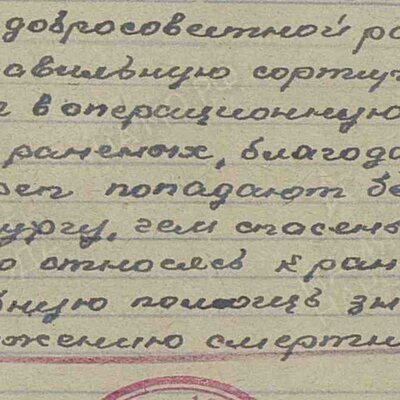 добросовестной ра
авильную сортир
в операционную
раненых, благода
рен попадают бе
ургу, чем спасен
о относясь к ран
ную помощь зн
жению смертн